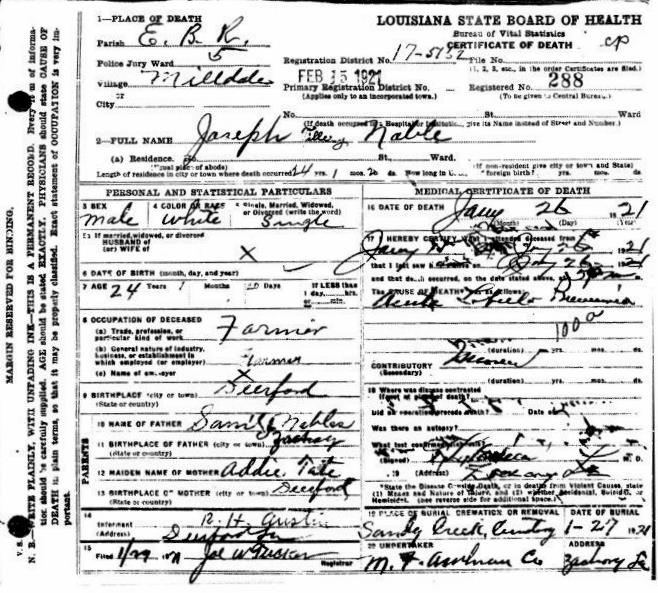 1—PLACE OF DEATH
LOUISIANA STATE BOARD OF HEALTH
Bureau of Vital Statistics
CERTIFICATE OF DEATH
Parish E. B. R.
Police Jury Ward 5
Registration District No. 17-5152 File No.
(1, 2, 3, etc., in the order Certificates are filed.)
Village Milldale
or
City
FEB 15 1921
Primary Registration District No. Registered No. 288
(Applies only to an incorporated town.) (To be given to Central Bureau.)
No. St., Ward
(If death occurred in a Hospital or Institution, give its Name instead of Street and Number.)
2—FULL NAME Joseph Nable
(a) Residence. No. St., Ward.
(Usual place of abode) (If non-resident give city or town and State)
Length of residence in city or town where death occurred 24 yrs. 1 mos. How long in U. S. foreign birth? yrs. mos. ds.
PERSONAL AND STATISTICAL PARTICULARS
3 SEX male
4 COLOR OR RACE white
5 Single, Married, Widowed, or Divorced (write the word) Single
5a If married, widowed, or divorced
HUSBAND of
(or) WIFE of X
6 DATE OF BIRTH (month, day, and year)
7 AGE 24 Years 1 Months Days If LESS than 1 day,....hrs. or....min.
8 OCCUPATION OF DECEASED
(a) Trade, profession, or particular kind of work Farmer
(b) General nature of industry, business, or establishment in which employed (or employer) Farmer
(c) Name of employer X
9 BIRTHPLACE (city or town) Deerford
(State or country)
PARENTS
10 NAME OF FATHER Nables
11 BIRTHPLACE OF FATHER (city or town) Zachary
(State or country)
12 MAIDEN NAME OF MOTHER Addie Tate
13 BIRTHPLACE OF MOTHER (city or town) Deerford
(State or country)
14
Informant R. H. Austin
(Address) Deerford La
15
Filed 1/29 1921 Joe W Tucker
Registrar
MEDICAL CERTIFICATE OF DEATH
16 DATE OF DEATH Jany 26 1921
(Month) (Day) (Year)
17 I HEREBY CERTIFY, That I attended deceased from
Jany 26 1921
that I last saw him alive on 26 1921
and that death occurred, on the date stated above, at m.
The CAUSE OF DEATH was as follows:
Acute Lobelo Pneumonia
100a
(duration) yrs. mos. ds.
CONTRIBUTORY
(Secondary)
(duration) yrs. mos. ds.
18 Where was disease contracted
if not at place of death?
Did an operation precede death? Date of
Was there an autopsy?
What test confirmed diagnosis?
(Signed) M. D.
, 19 (Address) La
*State the Disease Causing Death, or in deaths from Violent Causes, state
(1) Means and Nature of Injury, and (2) whether Accidental, Suicidal, or
Homicidal. (see reverse side for additional space.)
19 PLACE OF BURIAL CREMATION OR REMOVAL DATE OF BURIAL
Sandy Creek, 1-27 1921
20 UNDERTAKER ADDRESS
Co Zachary La
MARGIN RESERVED FOR BINDING.
V. S.
N. B.—WRITE PLAINLY, WITH UNFADING INK—THIS IS A PERMANENT RECORD. Every item of information
should be carefully supplied. AGE should be stated EXACTLY. PHYSICIANS should state CAUSE OF
DEATH in plain terms, so that it may be properly classified. Exact statement of OCCUPATION is very important.